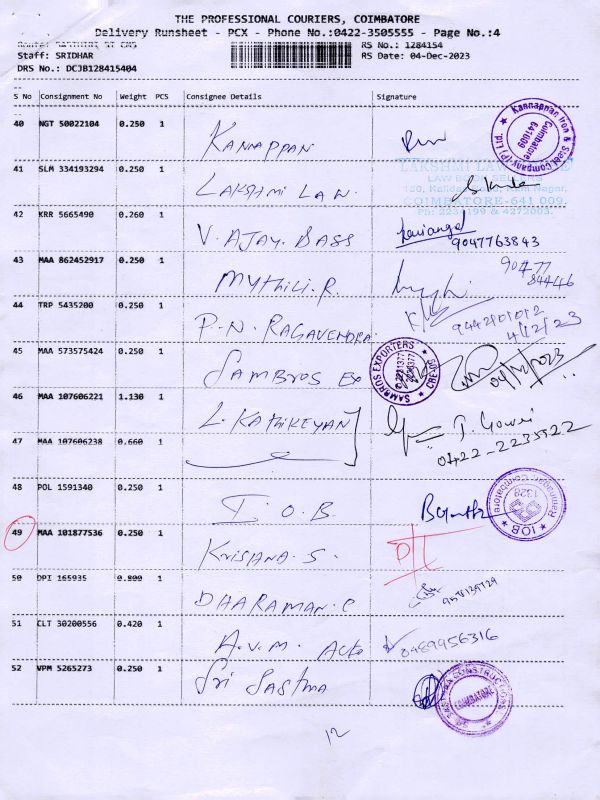 THE PROFESSIONAL COURIERS, COIMBATORE
Delivery Runsheet - PCX - Phone No.:0422-3505555 - Page No.:4
RS No.: 1284154
Staff: SRIDHAR RS Date: 04-Dec-2023
DRS No.: DCJB128415404
S No Consignment No Weight PCS Consignee Details Signature
40 NGT 50022104 0.250 1 KANNAPPAN
Kannappan Iron & Steel Company (P) Ltd. Coimbatore 641009
41 SLM 334193294 0.250 1 LAKSHMI LAW.
LAKSHMI LAW
LAW BOOK SELLERS
COIMBATORE-641 009.
42 KRR 5665490 0.260 1 V. AJAY. BASS
9047763843
43 MAA 862452917 0.250 1 MYTHILI. R.
90477
84446
44 TRP 5435200 0.250 1 P. N. RAGAVENDRA.
9442101012
4/12/23
45 MAA 573575424 0.250 1 SAMBROS EX
SAMBROS EXPORTERS
04/12/2023
46 MAA 107606221 1.130 1 L. KATHIKEYAN
47 MAA 107606238 0.660 1
0422-2235522
48 POL 1591340 0.250 1 I. O. B.
IOB 1328 Coimbatore
49 MAA 101877536 0.250 1 KRISHNA. S.
50 DPI 165935 0.800 1 DHARAMAN. C
51 CLT 30200556 0.420 1 A. V. M. Auto
0489956316
52 VPM 5265273 0.250 1 Sri Sastha
SRI SASTHA CONSTRUCTIONS COIMBATORE
12